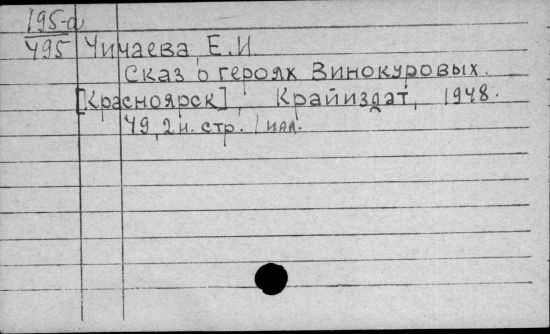 195-а
495 Чичаева Е.И.
Сказ о героях Винокуровых.
[Красноярск], Крайиздат, 1948.
49, 2 н. стр. / илл.